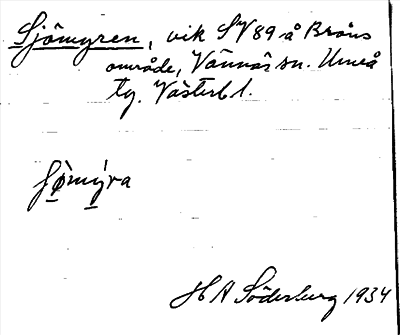 Sjömyren, vik SV89 å Bråns
område, Vännäs sn. Umeå
tg. Västerb l.
ʃø̀mýra
H A Söderberg 1934